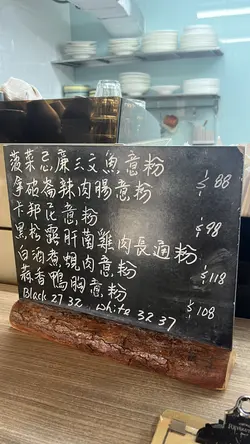 菠菜忌廉三文魚意粉 $88
拿破崙辣肉腸意粉
卡邦尼意粉 $98
黑松露肝菌雞肉長通粉
白酒煮蜆肉意粉 $118
蒜香鴨胸意粉 $108
Black 27 32 White 32 37